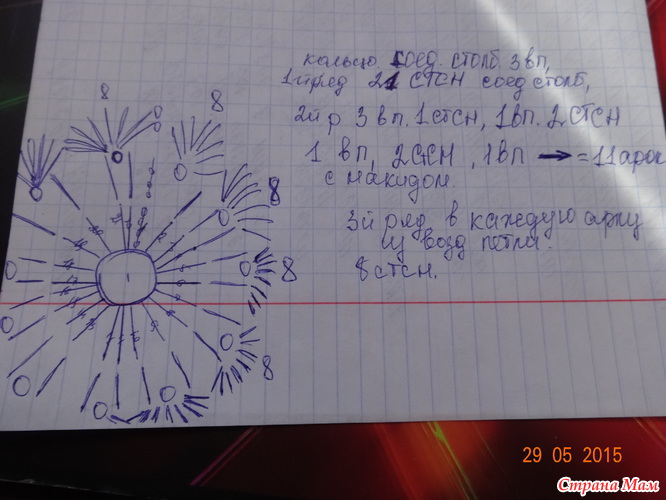 кольцо соед. столб. 3 вп,
1й ряд 21 СТСН соед столб,
2й р 3 вп. 1 стсн, 1 вп. 2 СТСН
1 вп, 2 стсн, 1 вп → = 11 арок
с накидом.
3й ряд в каждую арку
из возд петли.
8 стсн.
8
8
8
8
8
29 05 2015
Страна Мам